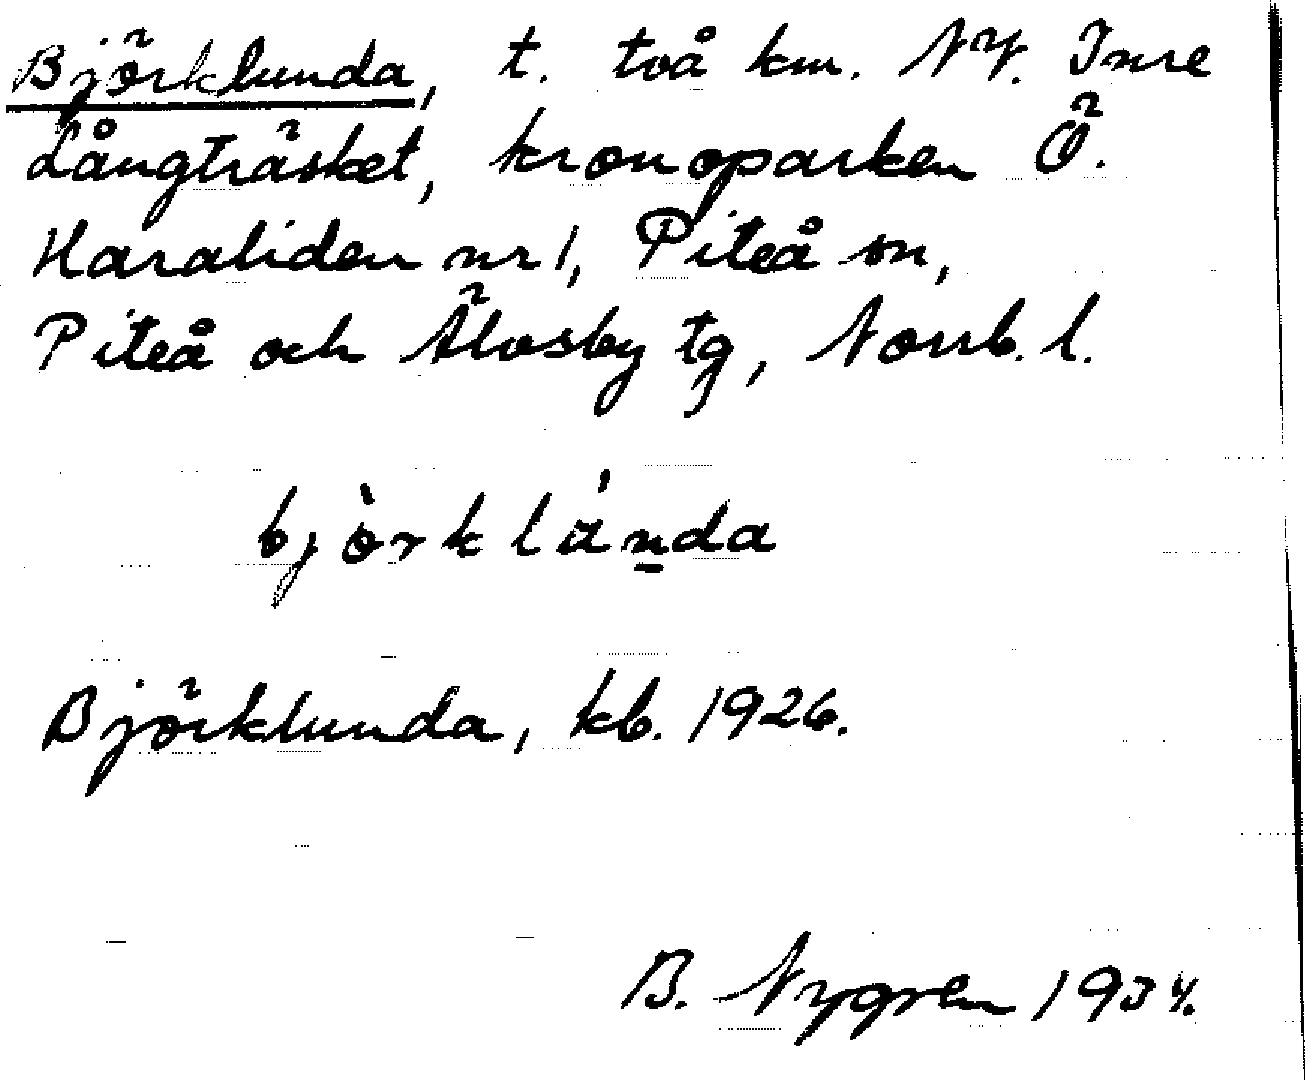 Björklunda, t. två km. NV. Inre
Långträsket, kronoparken Ö.
Haraliden nr 1, Piteå sn,
Piteå och Älvsby tg, Norrb. l.
bjò̀rklánda
Björklunda, kb. 1926.
B. Nygren 1934.